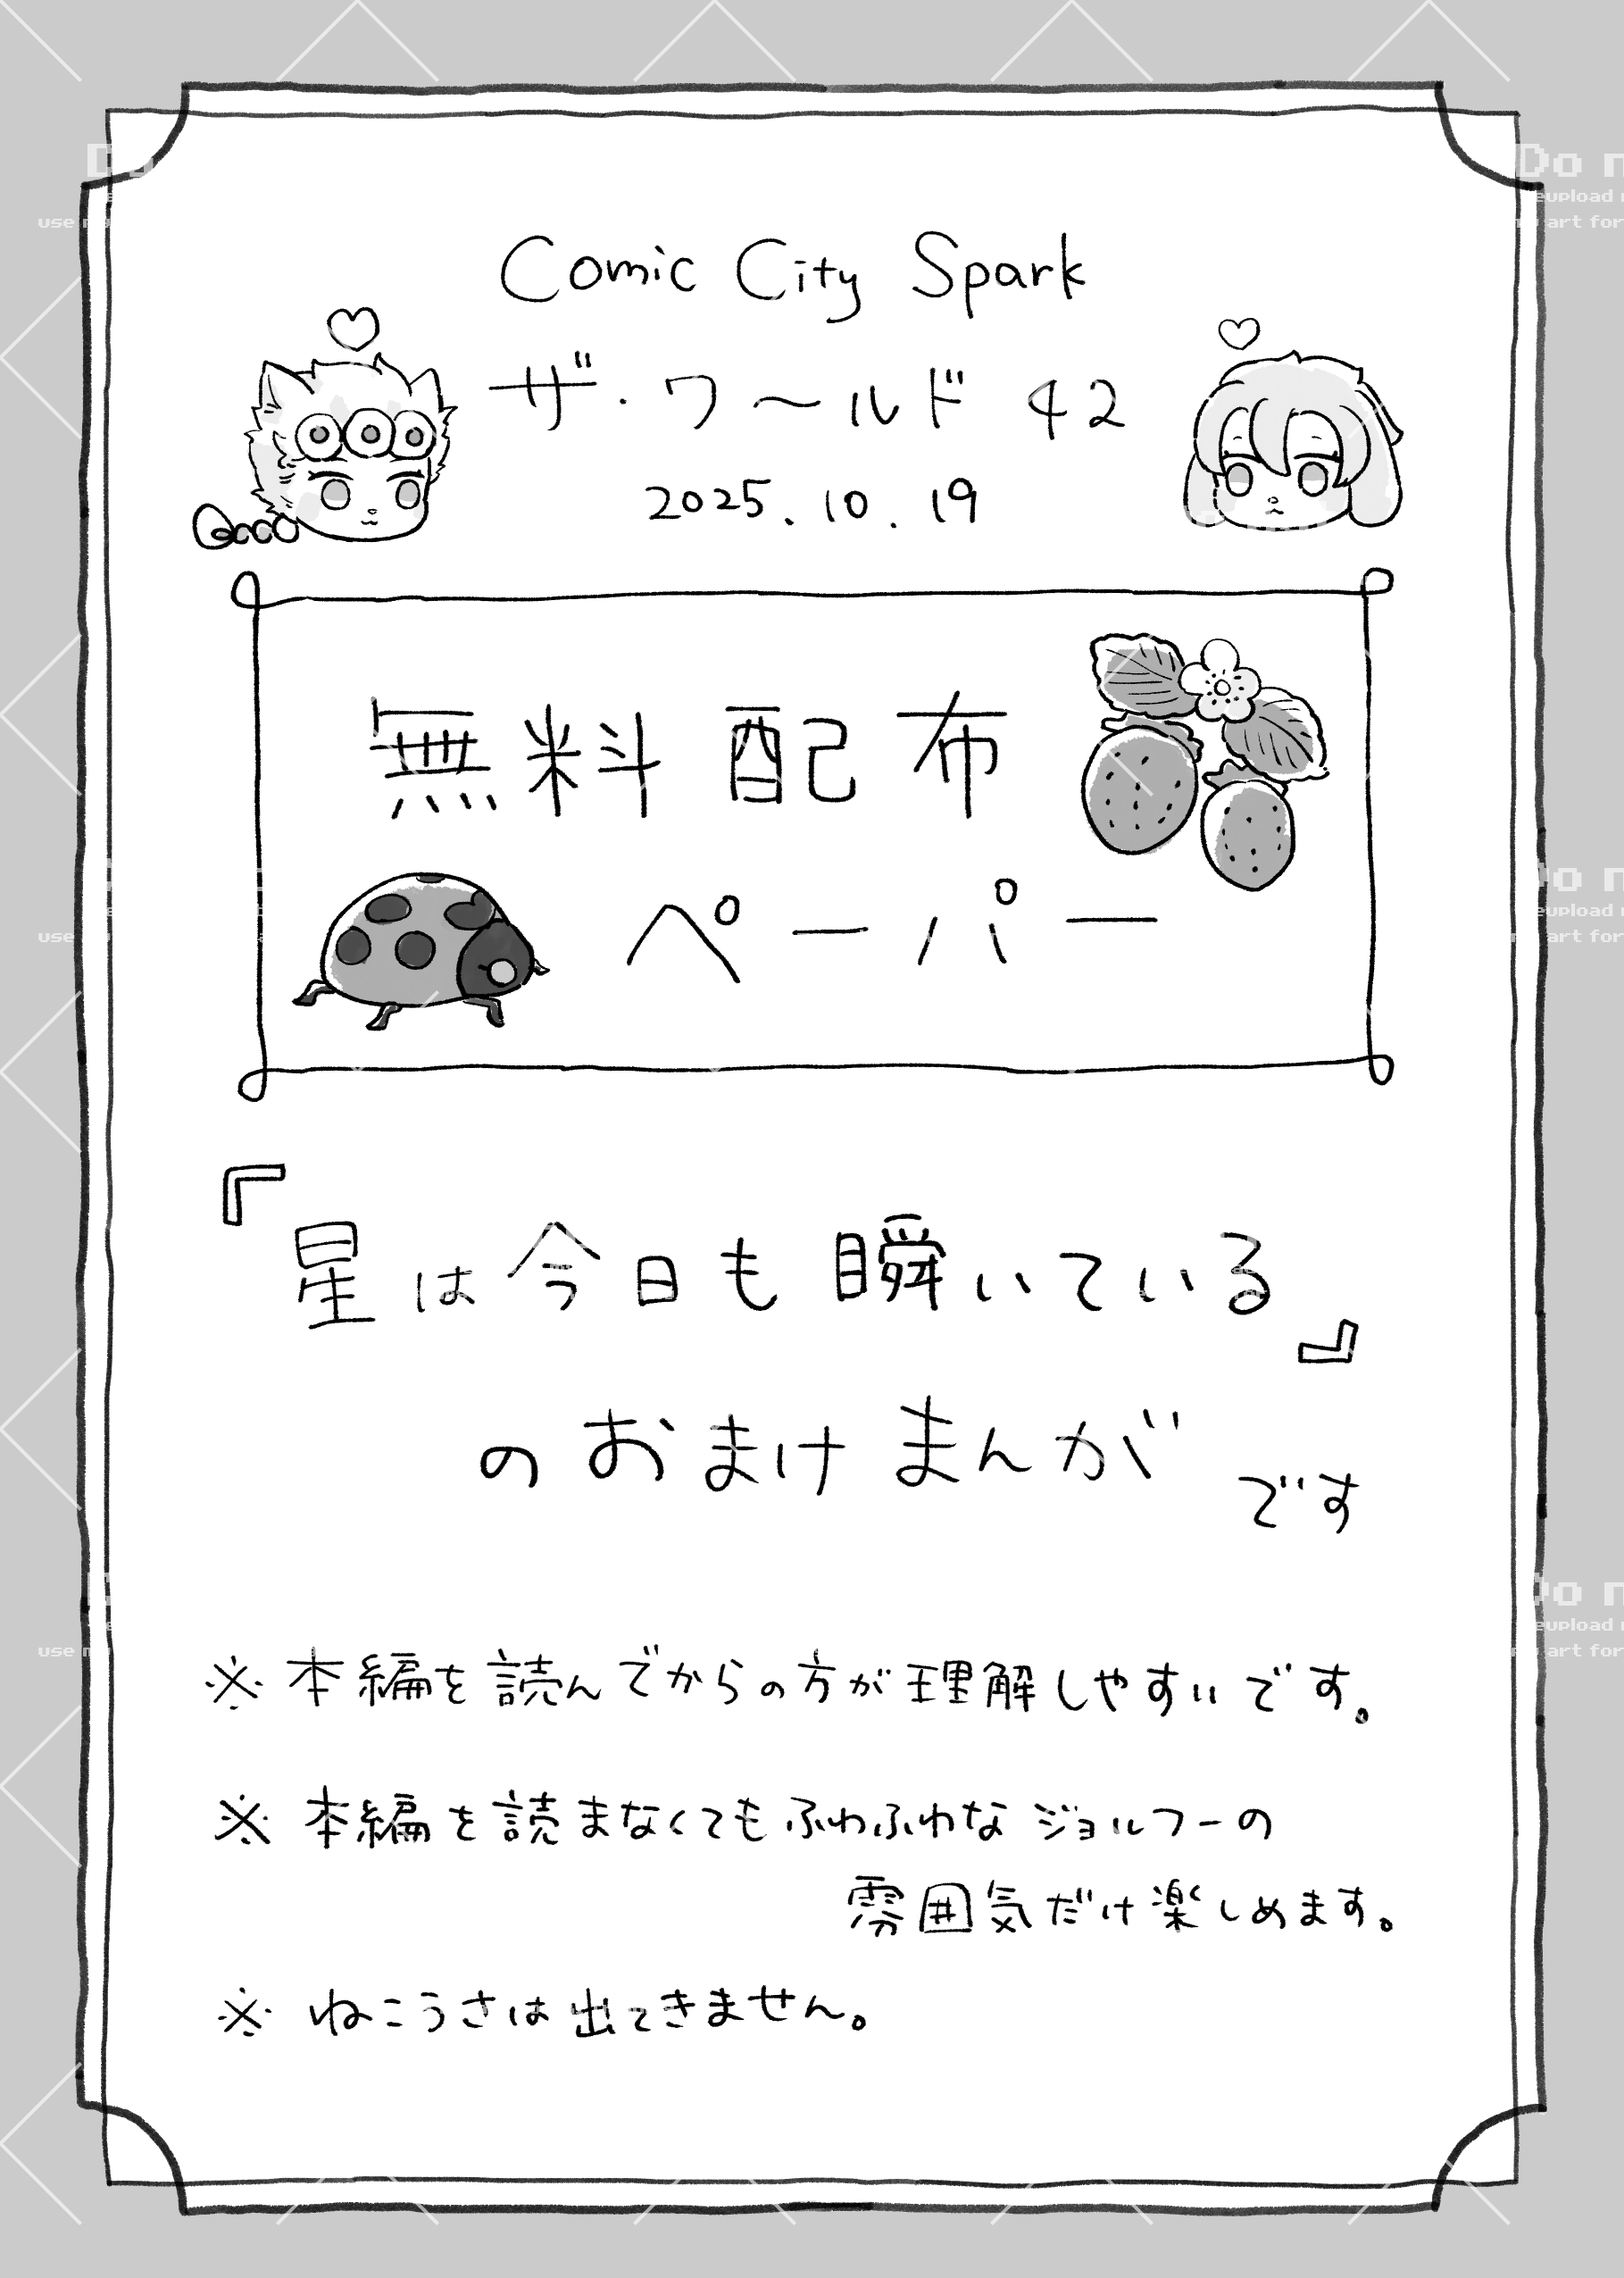 Comic City Spark
ザ・ワールド 42
2025.10.19
無料配布
ペーパー
『星は今日も瞬いている』
のおまけまんがです
※本編を読んでからの方が理解しやすいです。
※本編を読まなくてもふわふわなジョルフーの
雰囲気だけ楽しめます。
※ねこうさは出てきません。